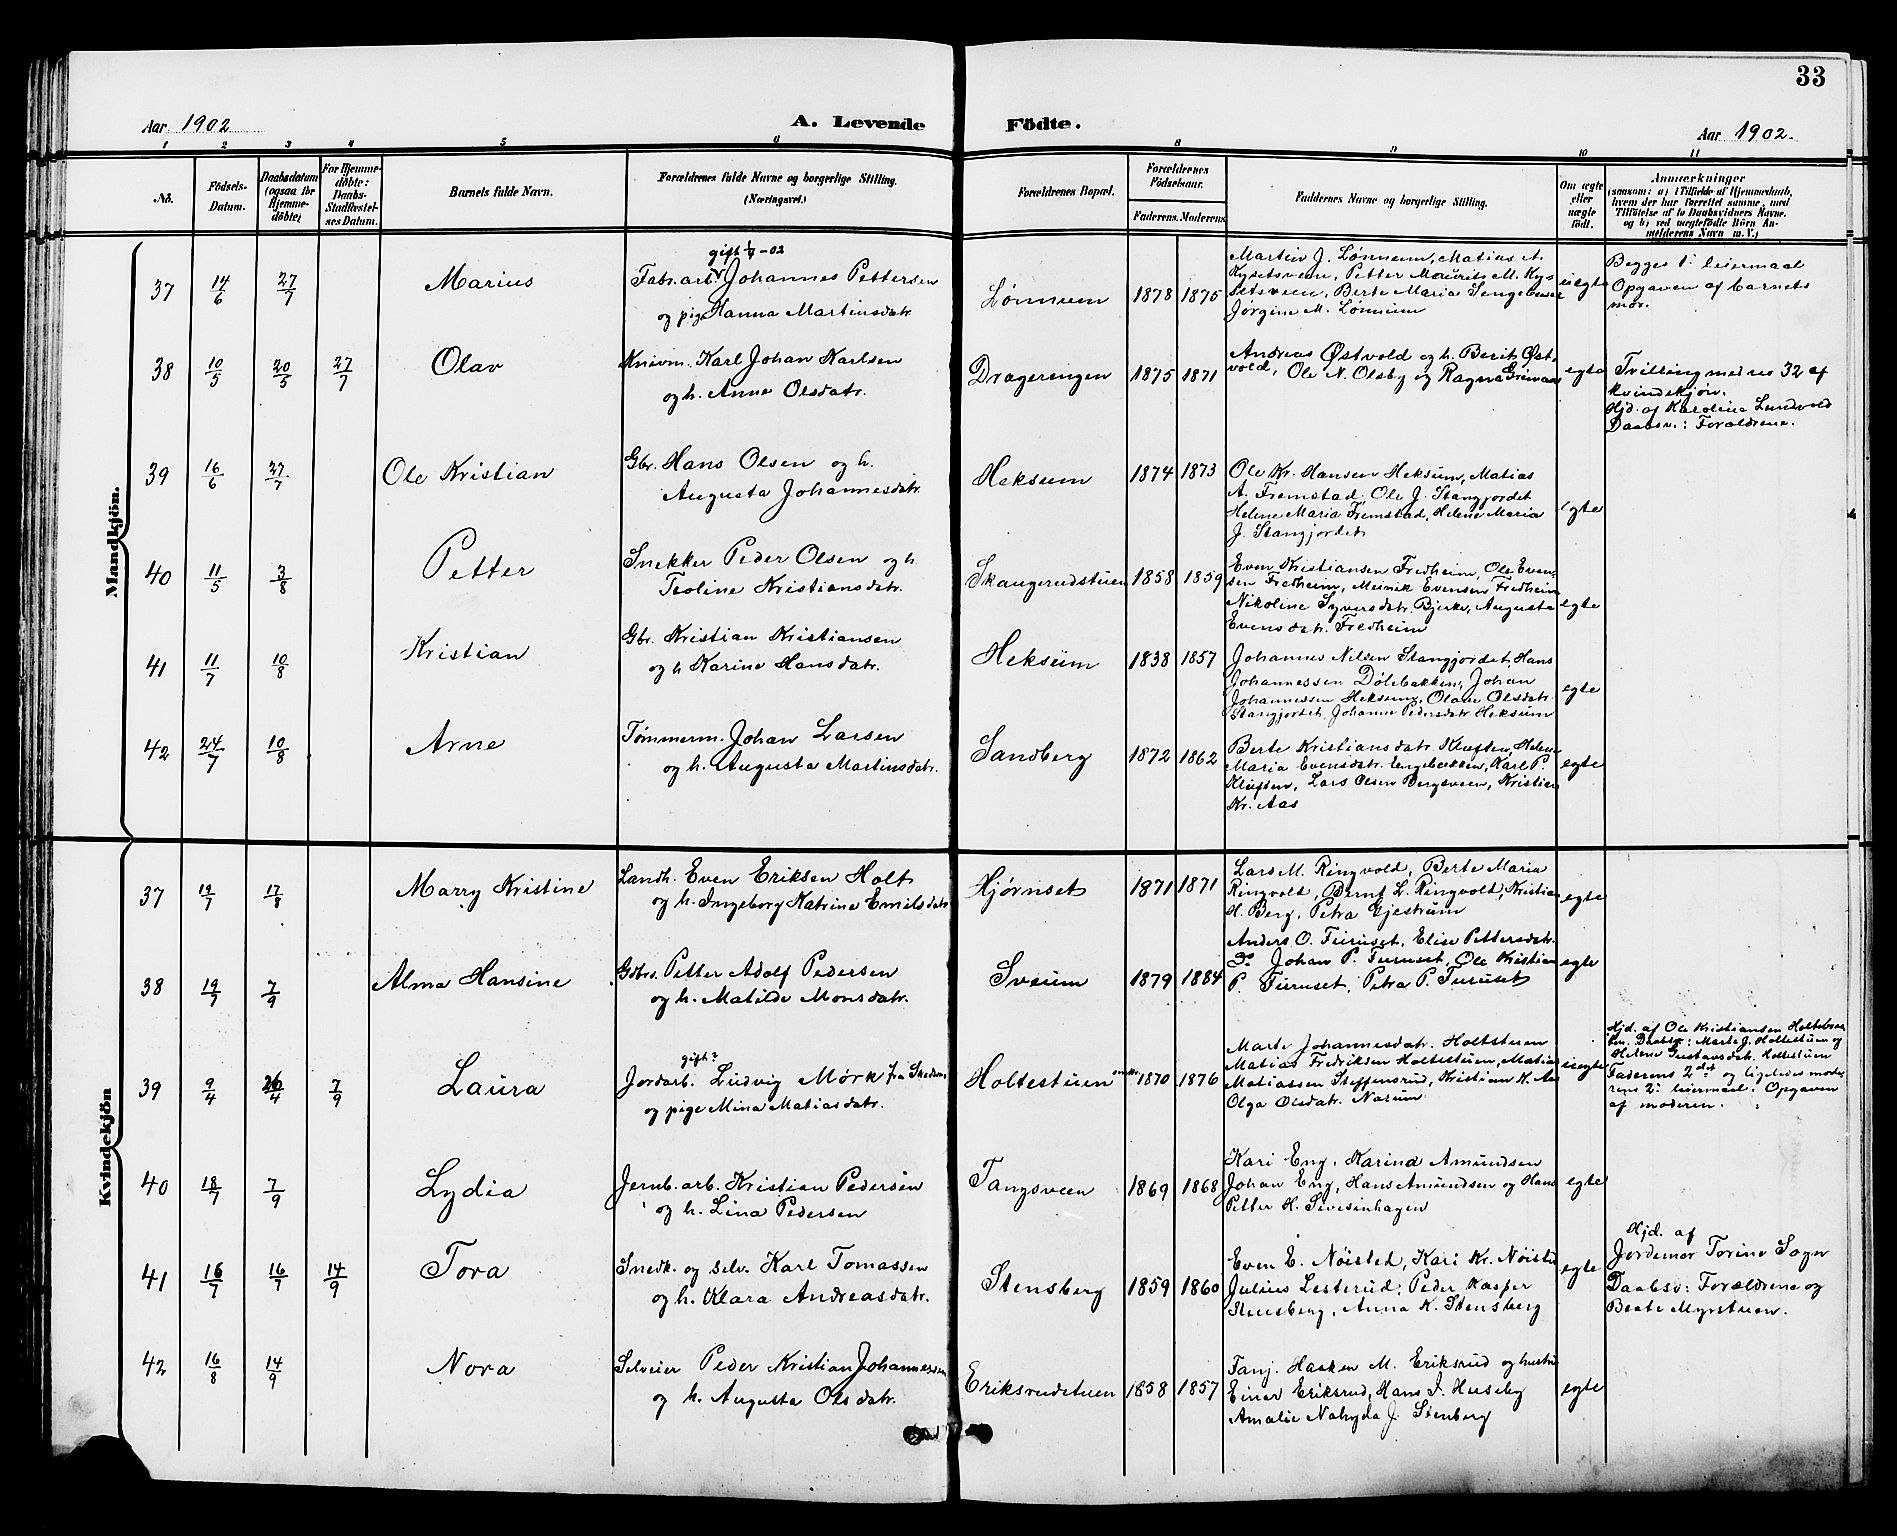 33
Aar 1902
A. Levende Födte.
Aar 1902.
1 2 3 4 5 6 8 9 10 11
No.
Födsels-
Datum.
Daabsdatum
(ogsaa for
Hjemme-
döbte)
For Hjemme-
döbte:
Daabs-
Stadfæstel-
ses Datum.
Barnets fulde Navn.
Forældrenes fulde Navne og borgerlige Stilling.
(Næringsvei.)
Forældrenes Bopæl.
Forældrenes
Födselsaar.
Faderens. Moderens.
Faddernes Navne og borgerlige Stilling.
Om ægte
eller
uægte
födt.
Anmærkninger
(saasom: a) i Tilfælde af Hjemmedaab,
hvem der har forrettet samme, med
Tilföielse af to Daabsvidners Navne.
og b) ved uægtefödte Börn An-
melderens Navn m. V.)
Mandkjön.
37 14/6 27/7 Marius
gift
-02
Fabr.arb. Johannes Pettersen
og pige Hanna Martinsdatr.
Lønnum 1878 1875
Martin J. Lønnum, Matias A.
Kysetsveen, Petter Maurits M. Ky-
setsveen, Berte Maria
Jørgine M. Lønnum
uegte
Begges 1ste leiermaal
Opgaven af barnets
mor.
38 10/5 20/5 27/7 Olav
Knivm. Karl Johan Karlsen
og h. Anne Olsdatr.
Dragerengen 1875 1871
Andreas Østvold og h. Berit Øst-
vold, Ole N. Olsby og Ragna
egte
Tvilling med no 32 af
kvindekjøn.
Hjd. af Karoline Lundvold
Daabsv.: Forældrene.
39 16/6 27/7 Ole Kristian
Gbr. Hans Olsen og h.
Augusta Johannesdatr.
Heksum 1874 1873
Ole Kr. Hansen Heksum, Matias
A. Fremstad, Ole J. Stangjordet
Helene Maria Fremstad, Helene Maria
J. Stangjordet
egte
40 11/5 3/8 Petter
Snekker Peder Olsen og h
Teoline Kristiansdatr.
Skaugerudstuen 1858 1859
Even Kristiansen Fredheim, Ole Even-
sen Fredheim, Meinik Evensen Fredheim
Nikoline Syversdatr. Bjerke, Augusta
Evensdatr. Fredheim
egte
41 11/7 10/8 Kristian
Gbr. Kristian Kristiansen
og h Karine Hansdatr.
Heksum 1838 1857
Johannes Nilsen Stangjordet, Hans
Johannessen Dølebakken, Johan
Johannessen Heksum, Olave Olsdatr.
Stangjordet, Johanne Pedersdatr. Heksum
egte
42 24/7 10/8 Arne
Tømmerm. Johan Larsen
og h. Augusta Martinsdatr.
Sandberg 1872 1862
Berte Kristiansdatr. Kluften, Helene
Maria Evensdatr. Engebakken, Karl P.
Kluften, Lars Olsen Bergsveen, Kristian
Kr. Aas
egte
Kvindekjön
37 19/7 17/8 Marry Kristine
Landh. Even Eriksen Holt
og h. Ingeborg Katrine Emilsdatr
Hjørnset 1871 1871
Lars M. Ringvold, Berte Maria
Ringvold, Bernt L. Ringvold, Kristian
H. Berg, Petra Gjestrum
egte
38 19/7 7/9 Alma Hansine
Gdbr. Petter Adolf Pedersen
og h. Matilde Monsdatr.
Sveum 1879 1884
Anders O. Furuset, Elise Pettersdatr.
do Johan P. Furuset, Ole Kristian
P. Furuset, Petra P. Furuset
egte
39 9/4 26/4 7/9 Laura
gift?
Jordarb. Ludvig Mørk fra
og pige Mina Matiasdatr.
Holtestuen 1870 1876
Marte Johannesdatr. Holtstuen
Matias Fredriksen Holtestuen, Matias
Matiassen Steffensrud, Kristian H. Aas
Olga Olsdatr. Narum
uegte
Hjd. af Ole Kristiansen
Daabsv: Marte J. Holtestuen og
Helene Gustavsdatr. Holtestuen
Faderens 2det og ligeledes mode-
rens 2: leiermaal. Opgaven
af moderen.
40 18/7 7/9 Lydia
Jernb. arb. Kristian Pedersen
og h. Lina Pedersen
Tangsveen 1869 1868
Kari Eng, Karina Amundsen
Johan Eng, Hans Amundsen og Hans
Petter H. Sivesinhagen
egte
41 16/7 16/7 14/9 Tora
Snedk. og selv. Karl Tomassen
og h. Klara Andreasdatr.
Stensberg 1859 1860
Even E. Nøisted, Kari Kr. Nøisted
Julius Lesterud, Peder Kasper
Stensberg, Anna K. Stensberg
egte
Hjd. af
Jordemor Torine Sogn
Daabsv: Forældrene og
Beate Myrstuen.
42 16/8 14/9 Nora
Selveier Peder Kristian Johannessen
og h. Augusta Olsdatr.
Eriksrudstuen 1858 1857
Fanj. Haaken M. Eriksrud og hustru
Einar Eriksrud, Hans J. Huseby
Amalie Nahyda J. Stenberg
egte